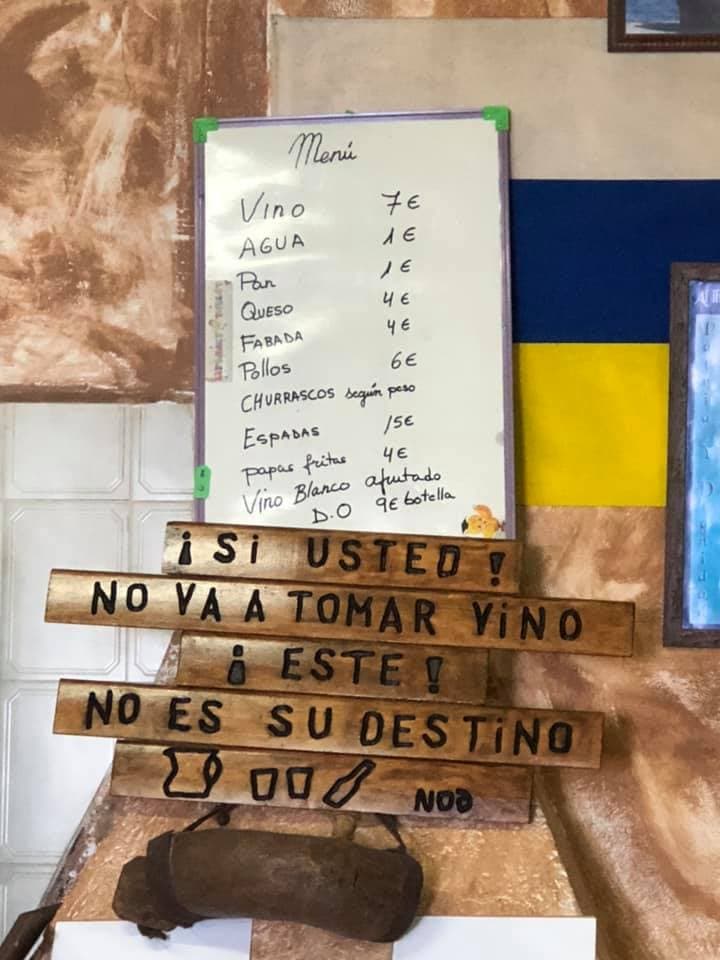 Menú
Vino 7€
AGUA 1€
Pan 1€
QUESO 4€
FABADA 4€
Pollos 6€
CHURRASCOS según peso
ESPADAS 15€
papas fritas 4€
Vino Blanco afrutado
D.O 9€ botella
¡Si USTED!
NO VA A TOMAR ViNO
¡ESTE!
NO ES SU DESTiNO